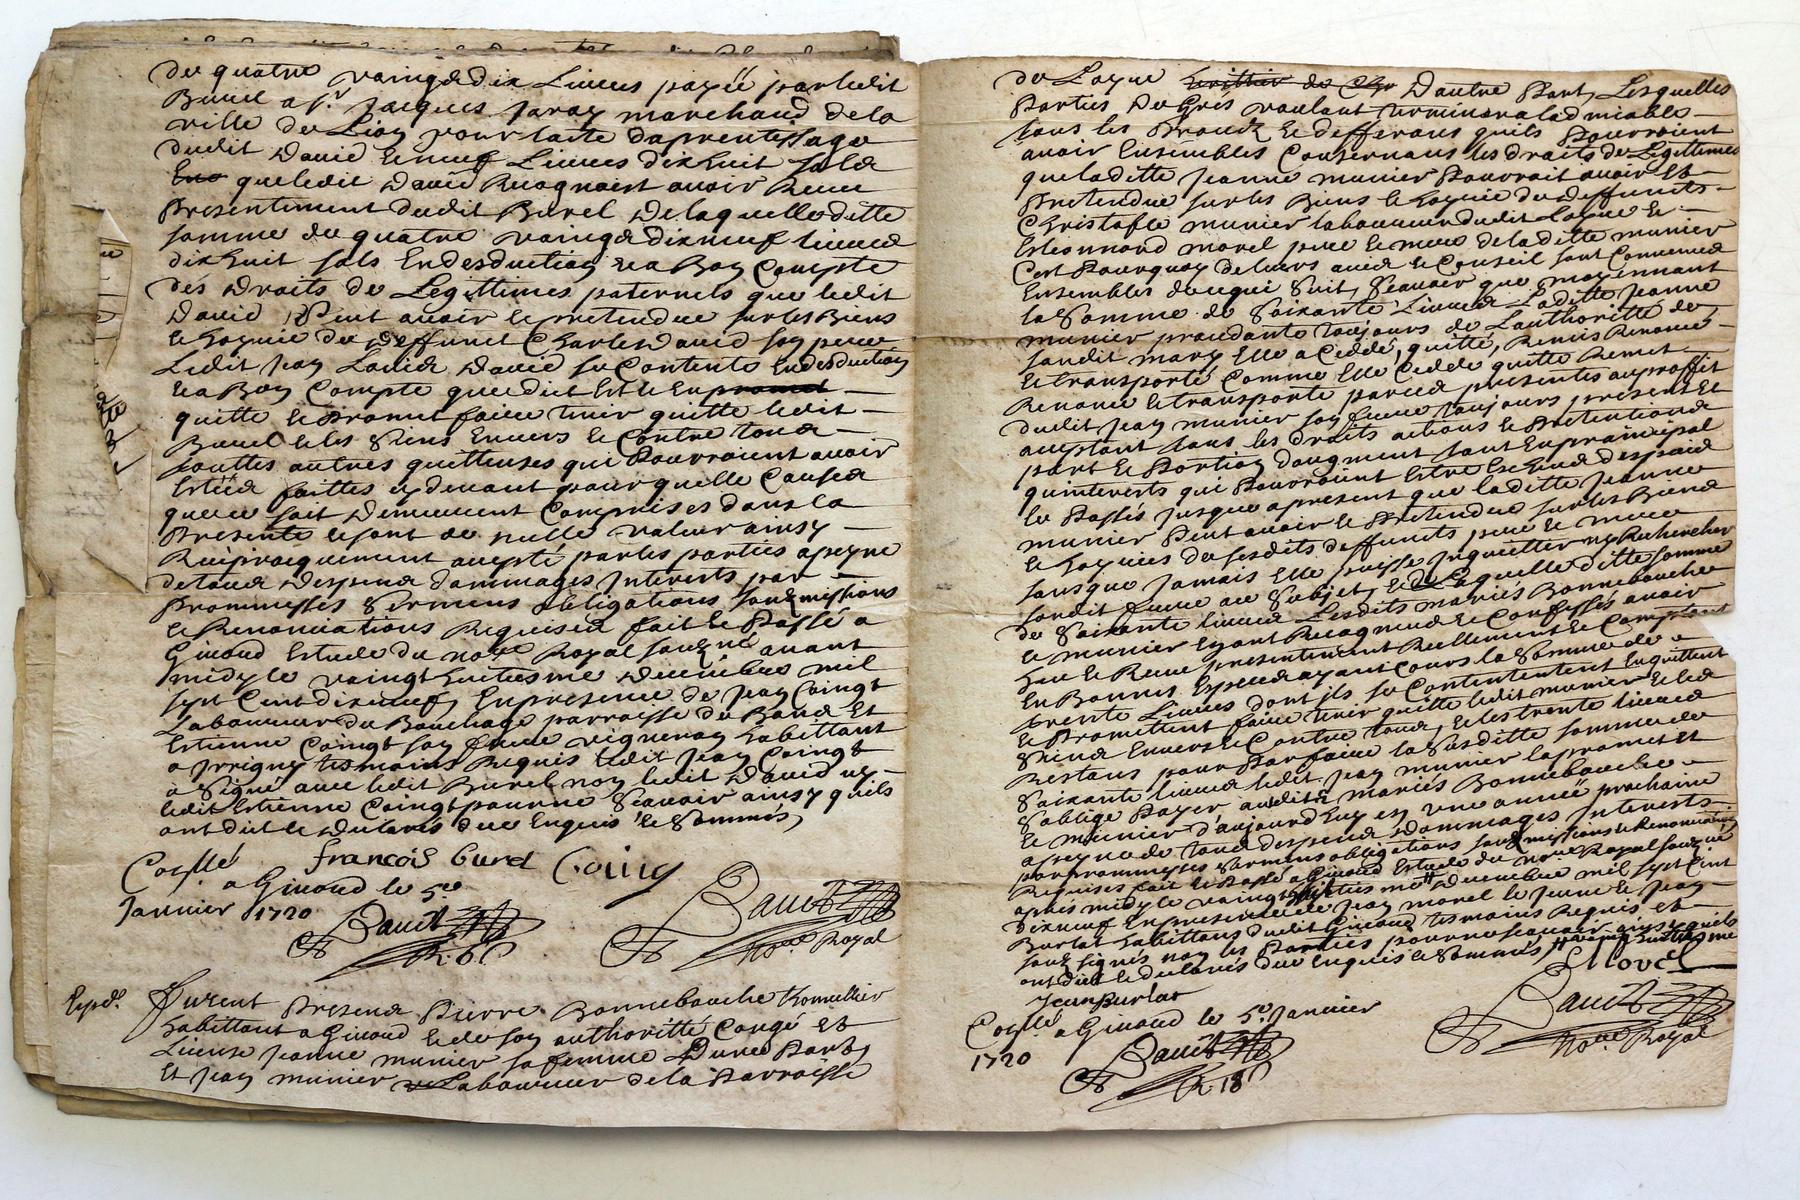 de quatre vaingts dix Livres payée par ledit
Burel a sr. Jacques Jaray marchand de la
ville de Lion pour laite daprentissage
dudit David Et neuf Livres dix huit sols
que ledit David Recognoist avoir Receu
Presentement dudit Burel De laquelle ditte
somme de quatre vaingts dix neuf livres
dix huit sols En desduction et a Bon Compte
des Droits de Legittimes paternels que ledit
David Peut avoir et pretendre sur les Biens
et hoyrie de deffunct Charles David son pere
Ledit Jean David se Contente En desduction
et a Bon Compte que dict Est et En
quitte et Promet faire tenir quitte ledit
Burel et les Siens Envers et Contre tous
touttes autres quittences qui Pourroient avoir
Estées faittes cy devant pour quelle Causes
que ce soit Demeurent Comprises dans la
Presente et sont de nulle valeur ainsy
Reciproquement accepté par les parties a peyne
de tous Despens dommages Interests par
Prommesses Sermens obligations soubzmissions
et Renonciations Requises fait et Passé a
Givord Estude du nore Royal soubzné avant
midy le vaingt huitiesme Decembre mil
sept Cent dix neuf En presence de Jean Coingt
Laboureur du Bouchage parroisse de Bans Et
Estienne Coingt son frere vigneron habittant
a Irrigny tesmoins Requis ledit Jean Coingt
a Signé avec ledit Burel non ledit David ny
ledit Estienne Coingt pour ne Scavoir ainsy quils
ont dit et Declarés de ce Enquis et Sommés,
francois burel Coing
Corllé
a Givord le 5e
Janvier 1720
Bauet Bauet
nore Royal
Expd. Furent Presens Pierre Bonnebouche thonnellier
habittant a Givord et de son authoritté Congé Et
Licence Jeanne munier sa femme D'une Part,
Et Jean munier Laboureur de la Parroisse
de Loyre D'autre Part, Lesquelles
Parties De Gris voulant terminer a ladmiable
tous les Procès et differans quils Pourroient
avoir Ensembles Consernans les droits de Legittimes
que laditte Jeanne munier Pourroit avoir Et
Pretendre sur les Biens et hoyrie de deffuncts
Christofle munier laboureur dudit Loyre Et
Leonnard morel pere et mere de laditte munier
C'est Pourquoy de leurs avis et Conseil sont Convenues
Ensembles de ce qui Suit, Scavoir que moyennant
la Somme de Soixante Livres Laditte Jeanne
munier procedante toujours de L'authoritté de
sondit mary Elle a Ceddé, quitté, Remis Renoncé
et transporté Comme Elle Cedde quitte Remet
Renonce et transporte par ces presentes au proffit
dudit Jean munier son frere toujours present Et
acceptant tous les droits actions et Pretentions
part et Portion daugment tant En principal
quinterests qui Pourroient Estre Escheus despuis
le Passés Jusque a present que laditte Jeanne
munier Peut avoir et Pretendre sur les Biens
et hoyries de sesdits deffuncts pere et mere
sans que Jamais Elle puisse Inquietter ny Rechercher
sondit frere au Subjet, et de Laquelle ditte somme
de Soixante livres Lesdits mariés Bonnebouche
et munier Eyant Recognus et Confessés avoir
Heu et Receu presentement Reellement et Comptant
En Bonnes Especes ayant Cours la Somme de
trente Livres dont ils se Contentent Enquittent
et Promettent faire tenir quitte ledit munier et les
Siens Envers et Contre tous, et les trente livres
Restans pour Parfaire la Susditte somme de
Soixante livres ledit Jean munier la promet Et
S'oblige Payer ausdits mariés Bonnebouche
Et munier d'aujourdhuy en une année prochaine
a peyne de tous despens dommages Interests
par prommesses Sermens obligations soubzmissions et Renonciations
Requises fait et Passé a Givord Estude du nore Royal soubzné
apres midy le vaingt Decembre mil sept Cent
Dix neuf En presence de Jean morel le Jeune et Jean
Burlat habittans dudit Givord tesmoins Requis et
soubz signés non les Parties pour ne scavoir ainsy quils
ont dit et declarés de ce enquis et sommés,
Morel
Jean Burlat
Corllé a Givord le 5e Janvier
1720
Bauet Bauet
nore Royal
R 18s